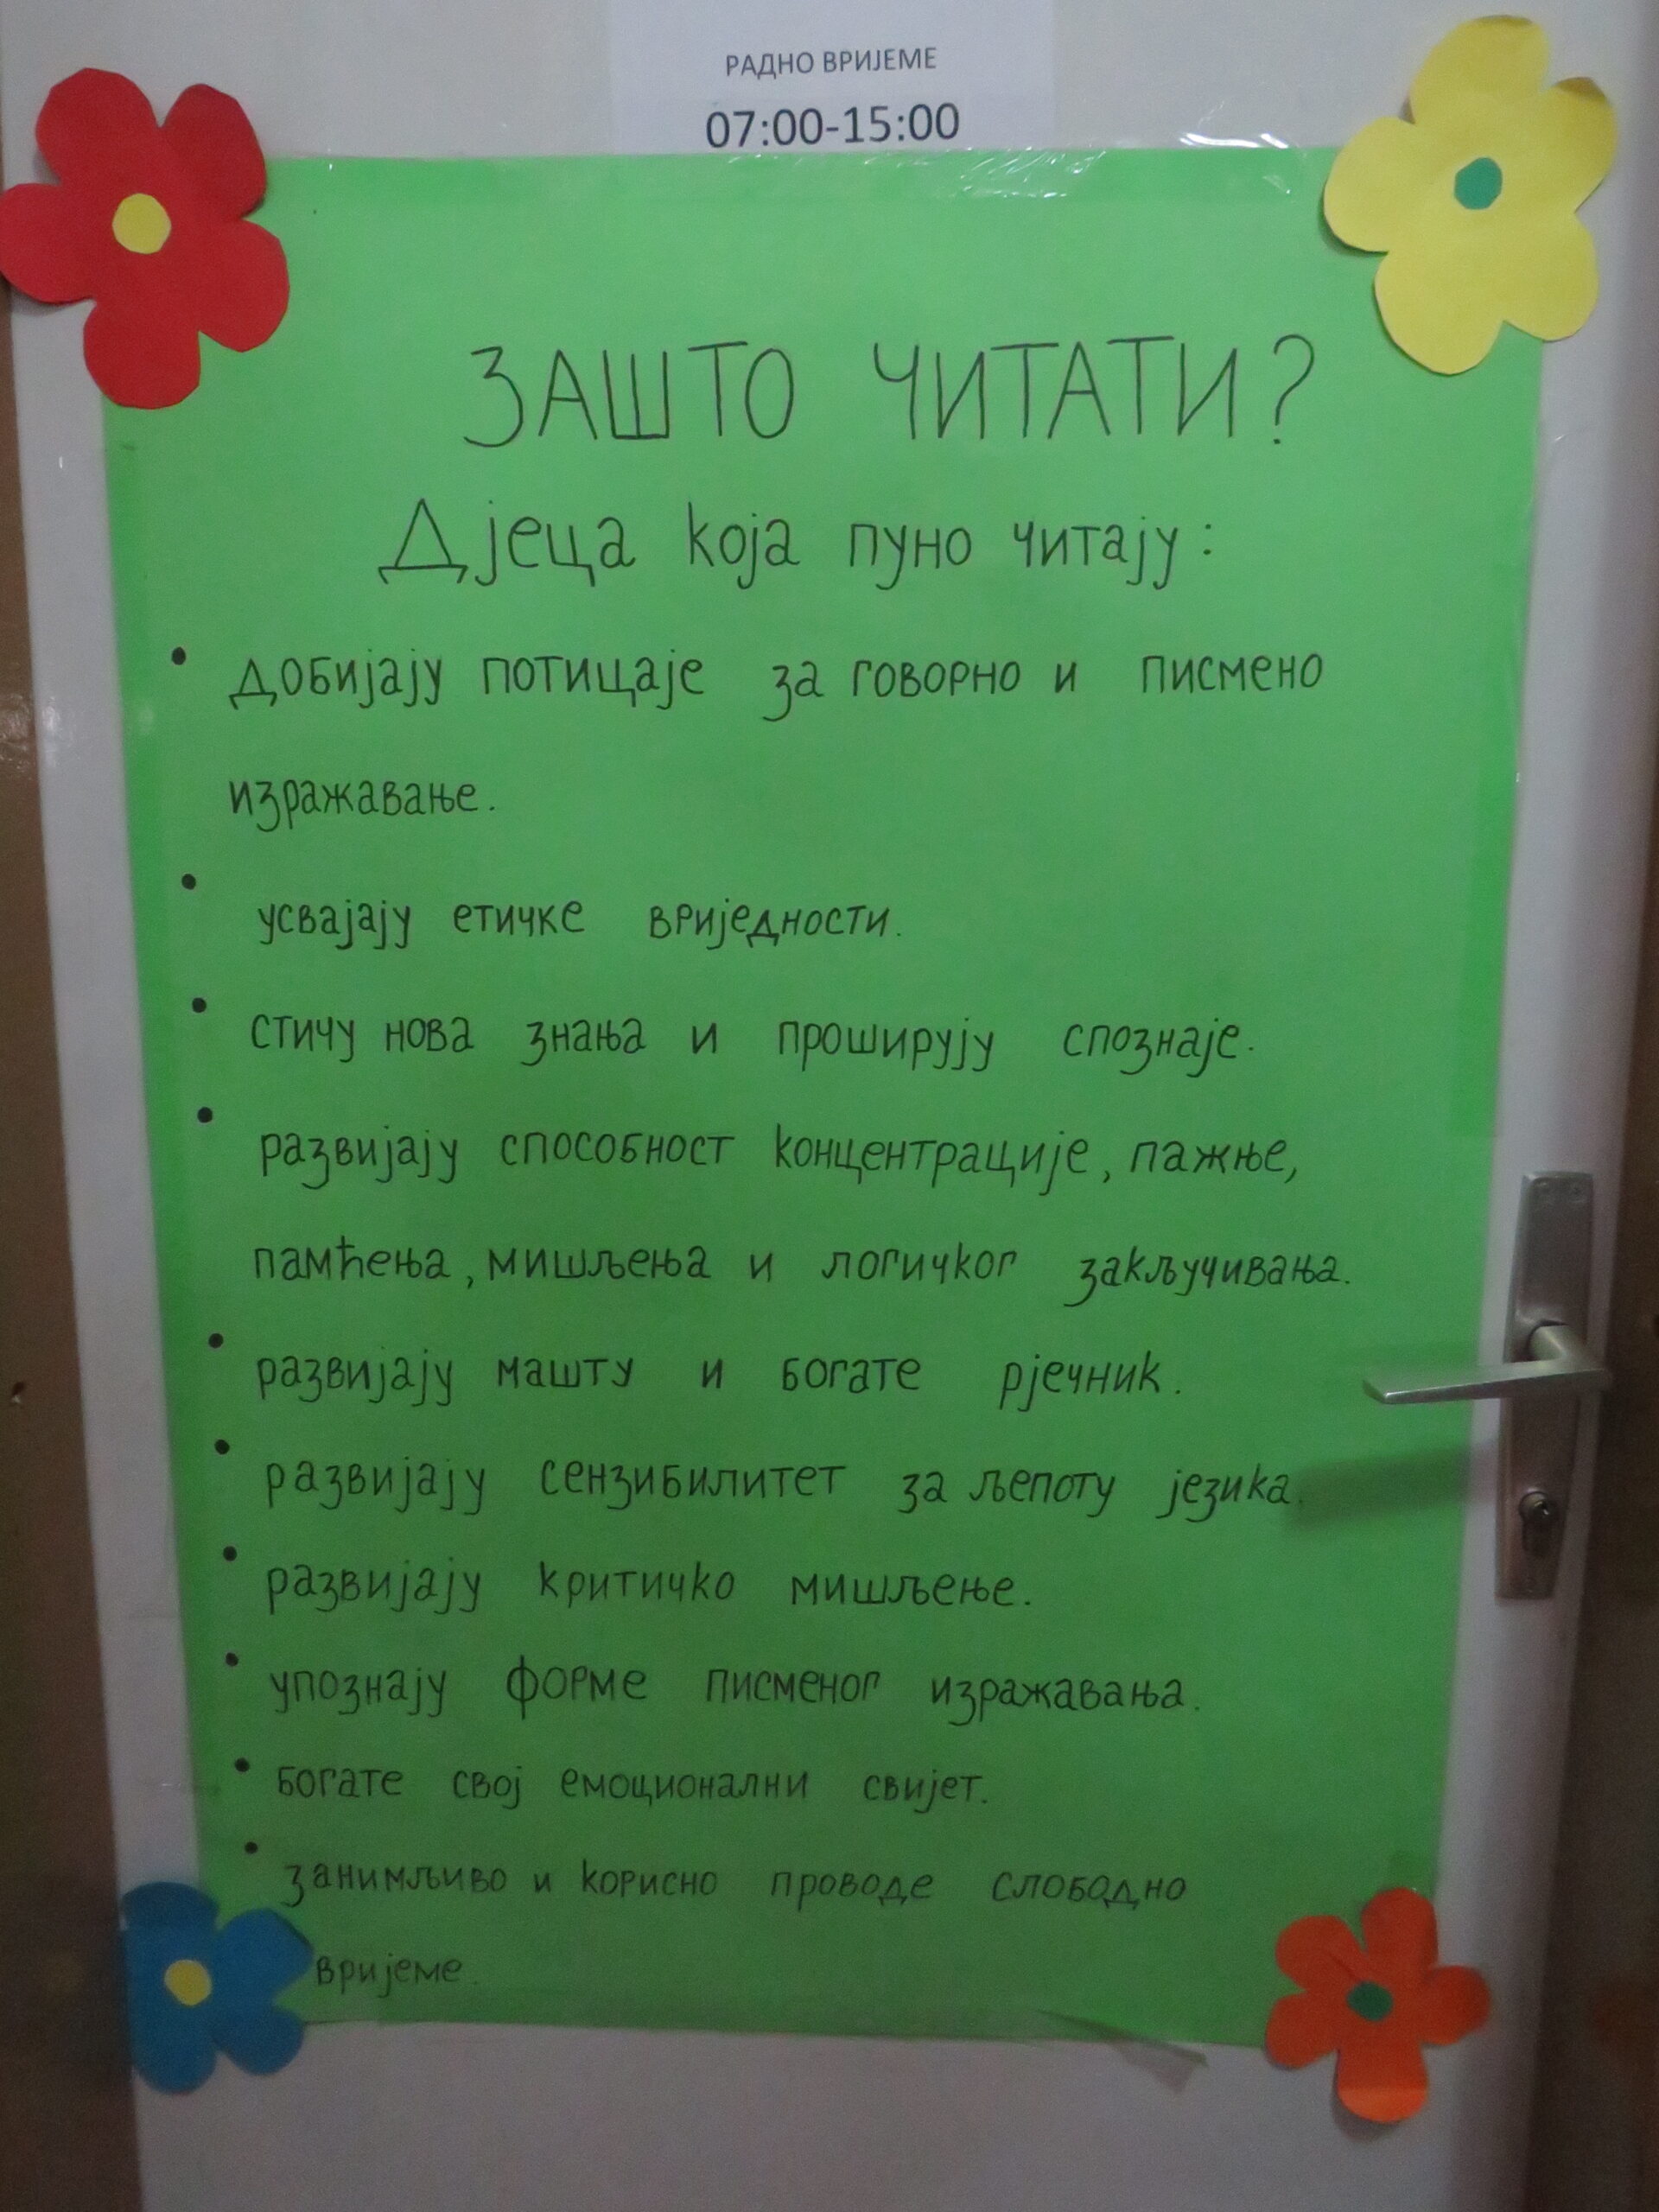 РАДНО ВРИЈЕМЕ
07:00-15:00
ЗАШТО ЧИТАТИ?
Дјеца која пуно читају:
• добијају потицаје за говорно и писмено
изражавање.
• усвајају етичке вриједности.
• стичу нова знања и проширују спознаје.
• развијају способност концентрације, пажње,
памћења, мишљења и логичког закључивања.
• развијају машту и богате рјечник.
• развијају сензибилитет за љепоту језика.
• развијају критичко мишљење.
• упознају форме писменог изражавања.
• богате свој емоционални свијет.
• занимљиво и корисно проводе слободно
вријеме.